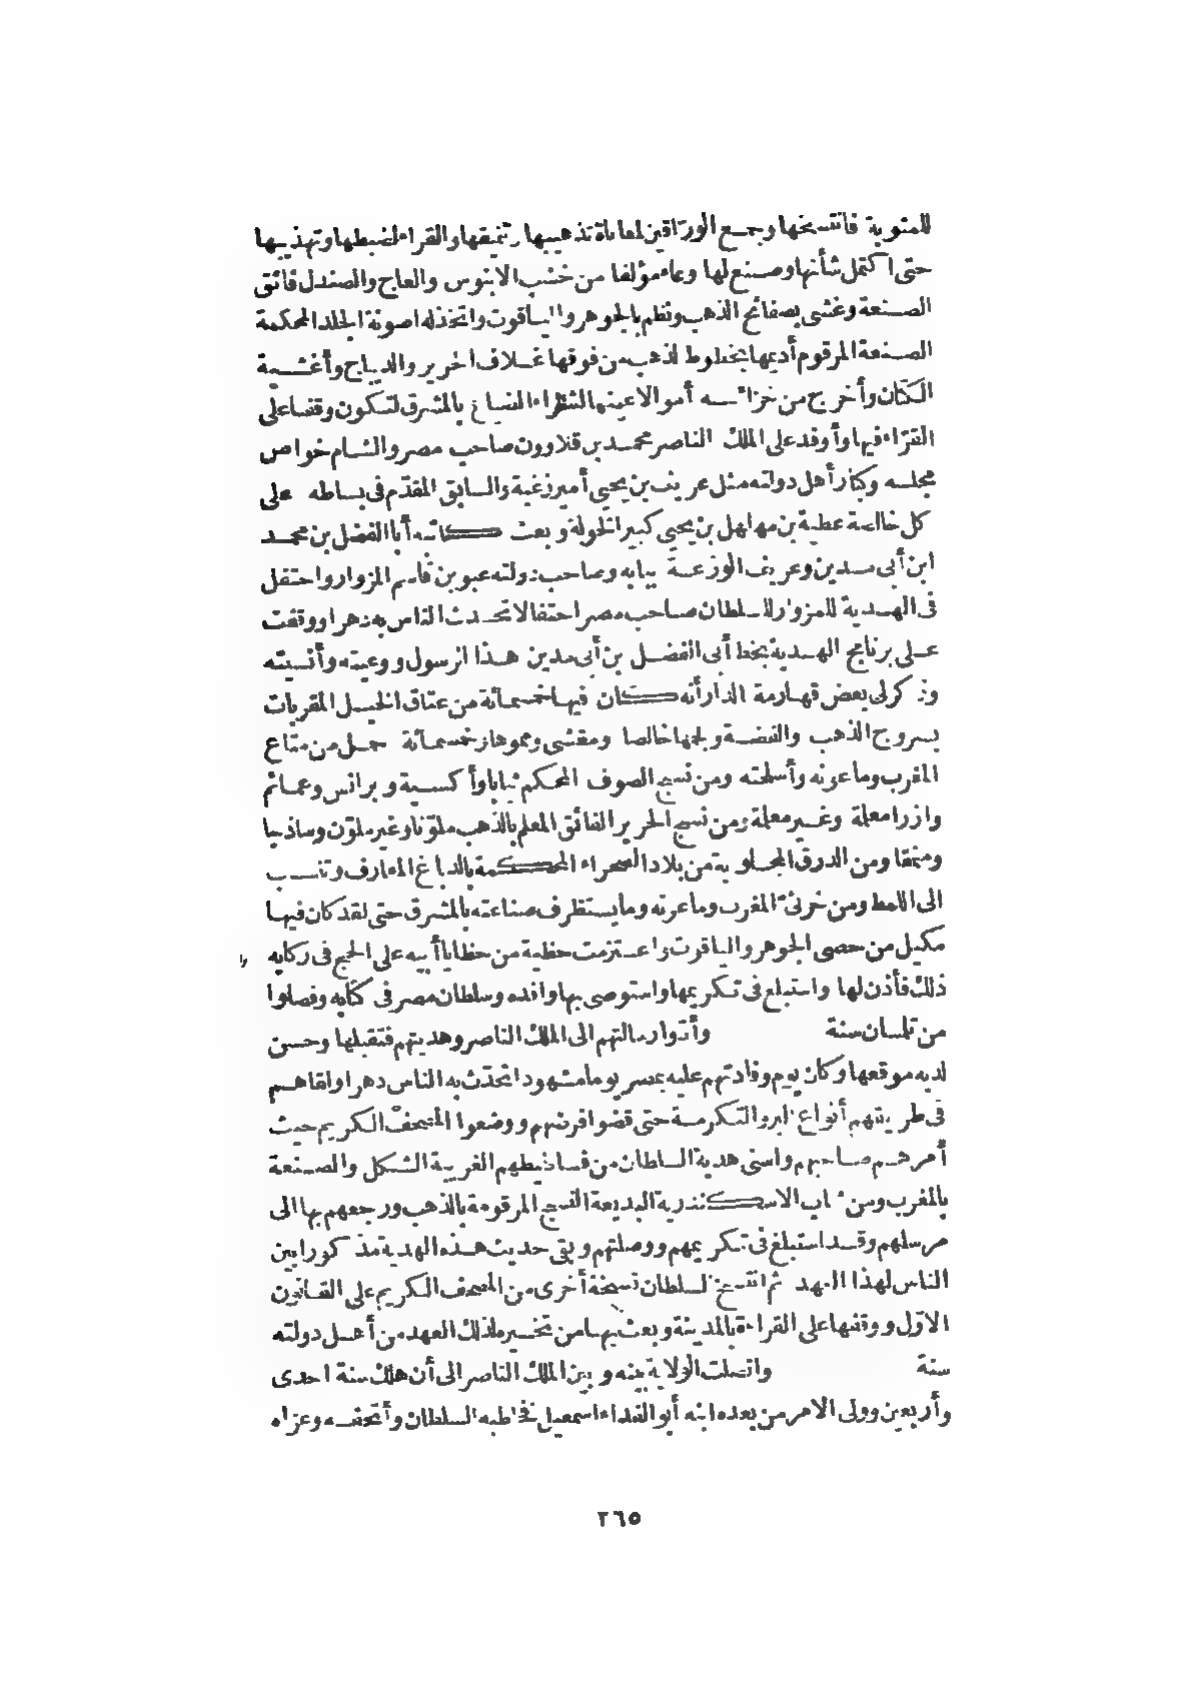 للمثوبة فانتسخها وجمع الوراقين لمعاناة تذهيبها وتنميقها والقراء لضبطها وتهذيبها
حتى اكتمل شأنها وصنع لها وعاء مؤلفا من خشب الابنوس والعاج والصندل فائق
الصنعة وغشى بصفائح الذهب ونظم بالجوهر والياقوت واتخذ له اصونة الجلد المحكمة
الصنعة المرقوم أديمها بخطوط الذهب من فوقها غلاف الحرير والديباج وأغشية
الكتان وأخرج من خزائنه أموالا عينها لشراء الضياع بالمشرق لتكون وقفا على
القراء فيها وأوفد على الملك الناصر محمد بن قلاوون صاحب مصر والشام خواص
مجلسه وكبار أهل دولته مثل عريف بن يحيى أمير زغبة والسابق المقدّم فى بساطه على
كل خالصة عطية بن مهلهل بن يحيى كبير الخولة وبعث كاتبه أبا الفضل بن محمد
ابن أبى مدين وعريف الوزعة ببابه وصاحب دولته عبو بن قاسم المزوار واحتفل
فى الهدية للمزوار للسلطان صاحب مصر احتفالا تحدث الناس به دهرا ووقفت
على برنامج الهدية بخط أبى الفضل بن أبى مدين هذا الرسول ووعيته وأنسيته
وذكر لى بعض قهارمة الدار أنه كان فيها خمسمائة من عتاق الخيل المقربات
بسروج الذهب والفضة ولجمها خالصا ومغشى ومموها وخمسمائة حمل من متاع
المغرب وماعونه وأسلحته ومن نسج الصوف المحكم ثيابا وأكسية وبرانس وعمائم
وازرا معلمة وغير معلمة ومن نسج الحرير الفائق المعلم بالذهب ملوّنا وغير ملوّن وساذجا
ومنمقا ومن الدرق المجلوبة من بلاد الصحراء المحكمة بالدباغ المعارف وتنسب
الى اللمط ومن خرثى المغرب وماعونه وما يستظرف صناعته بالمشرق حتى لقد كان فيها
مكيل من حصى الجوهر والياقوت واعتزمت حظية من حظايا أبيه على الحج فى ركابه
ذلك فأذن لها واستبلغ فى تكريمها واستوصى بها وافده وسلطان مصر فى كتابه وفصلوا
من تلمسان سنة وأدوا رسالتهم الى الملك الناصر وهديتهم فتقبلها وحسن
لديه موقعها وكان يوم وفادتهم عليه بمصر يوما مشهودا تحدّث به الناس دهرا ولقاهم
فى طريقهم أنواع البر والتكرمة حتى قضوا فرضهم ووضعوا المصحف الكريم حيث
أمرهم صاحبهم واسنى هدية السلطان من فساطيطهم الغريبة الشكل والصنعة
بالمغرب ومن ثياب الاسكندرية البديعة النسج المرقومة بالذهب ورجعهم بها الى
مرسلهم وقد استبلغ فى تكريمهم ووصلتهم وبقى حديث هذه الهدية مذكورا بين
الناس لهذا العهد ثم انتسخ السلطان نسخة أخرى من المصحف الكريم على القانون
الاوّل ووقفها على القراءة بالمدينة وبعث بها من تخيره لذلك العهد من أهل دولته
سنة واتصلت الولاية بينه وبين الملك الناصر الى أن هلك سنة احدى
وأربعين وولى الامر من بعده ابنه أبو الفداء اسمعيل فخاطبه السلطان وأتحفه وعزاه
٢٦٥